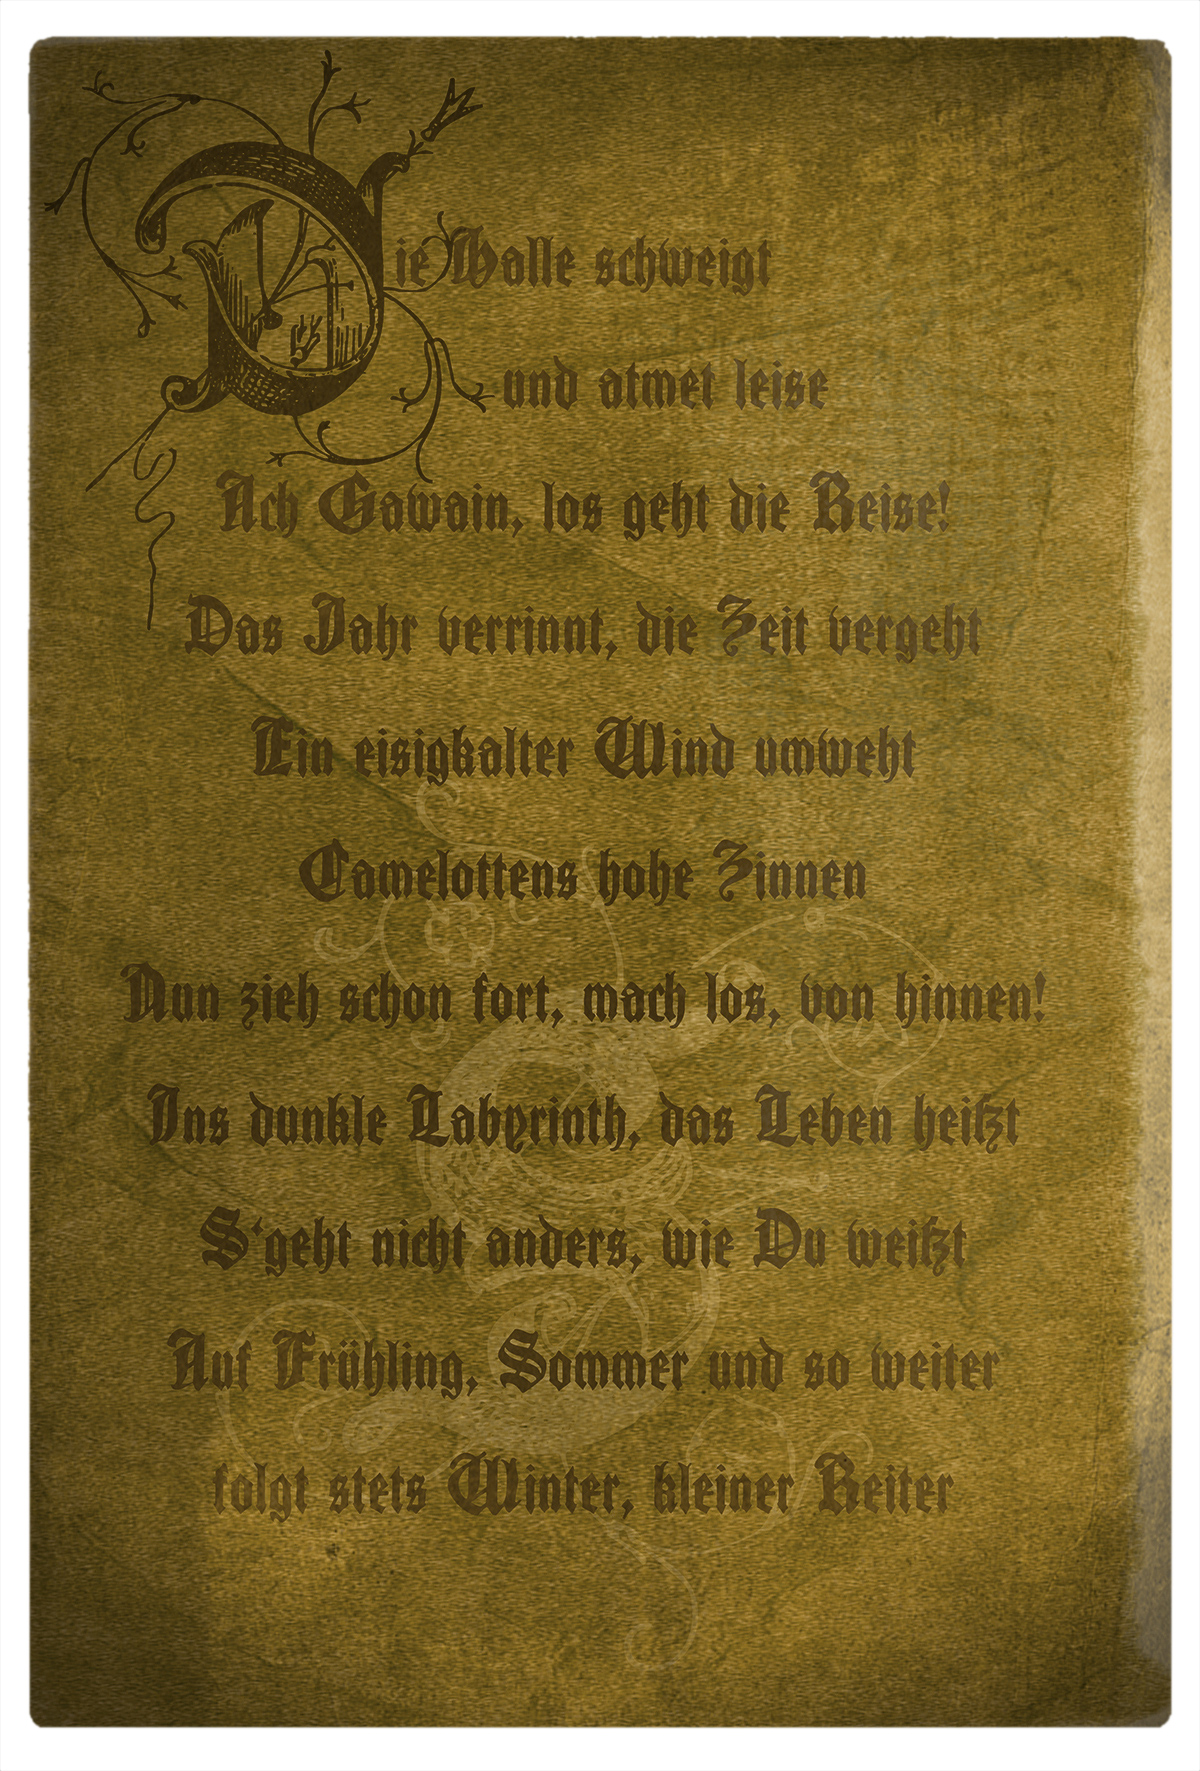 Die Halle schweigt
und atmet leise
Ach Gawain, los geht die Reise!
Das Jahr verrinnt, die Zeit vergeht
Ein eisigkalter Wind umweht
Camelottens hohe Zinnen
Nun zieh schon fort, mach los, von hinnen!
Ins dunkle Labyrinth, das Leben heißt
S'geht nicht anders, wie Du weißt
Auf Frühling, Sommer und so weiter
folgt stets Winter, kleiner Reiter